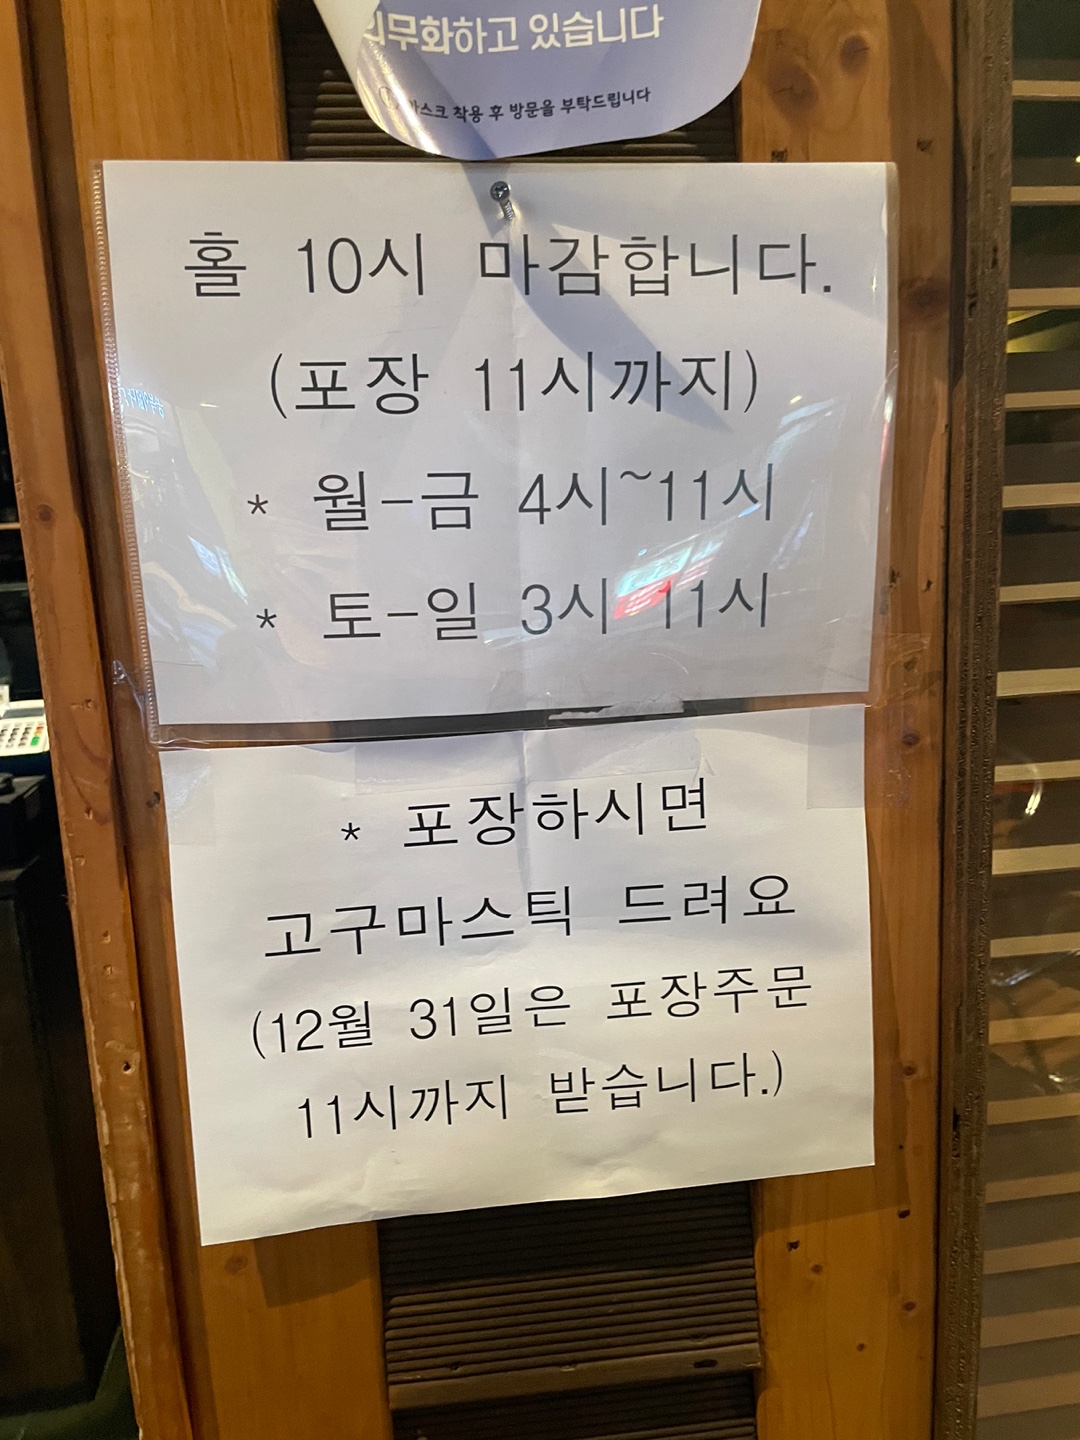 의무화하고 있습니다
마스크 착용 후 방문을 부탁드립니다
홀 10시 마감합니다.
(포장 11시까지)
* 월-금 4시~11시
* 토-일 3시~11시
* 포장하시면
고구마스틱 드려요
(12월 31일은 포장주문
11시까지 받습니다.)